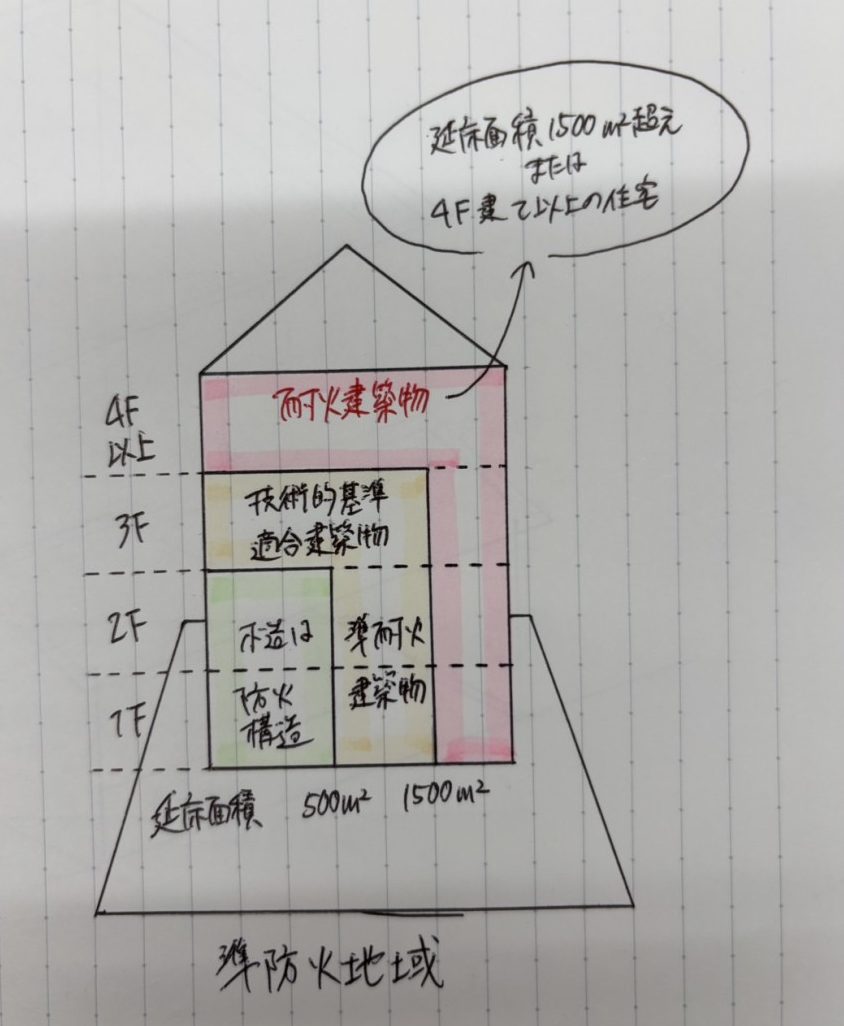 延床面積1500m²超え
または
4F建て以上の住宅
耐火建築物
4F
以上
技術的基準
適合建築物
3F
2F
木造は
準耐火
1F
防火
構造
建築物
延床面積 500m² 1500m²
準防火地域